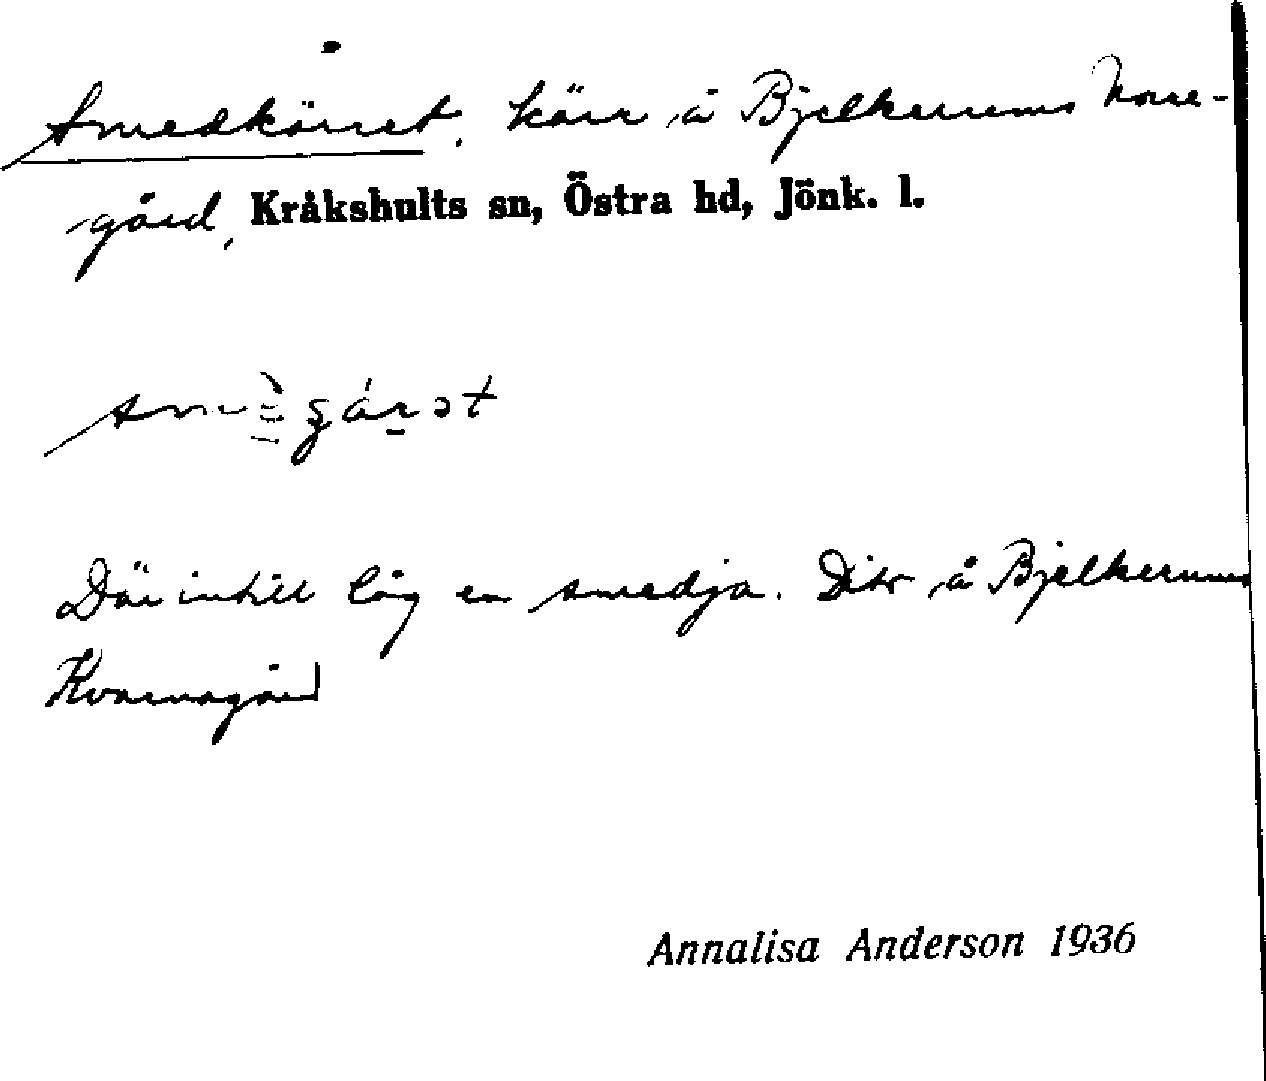 Smedkärret, kärr å Bjelkerums Norre-
gård, Kråkshults sn, Östra hd, Jönk. l.
Därintill låg en smedja. Dito å Bjelkerums
Kvarnagård
Annalisa Anderson 1936